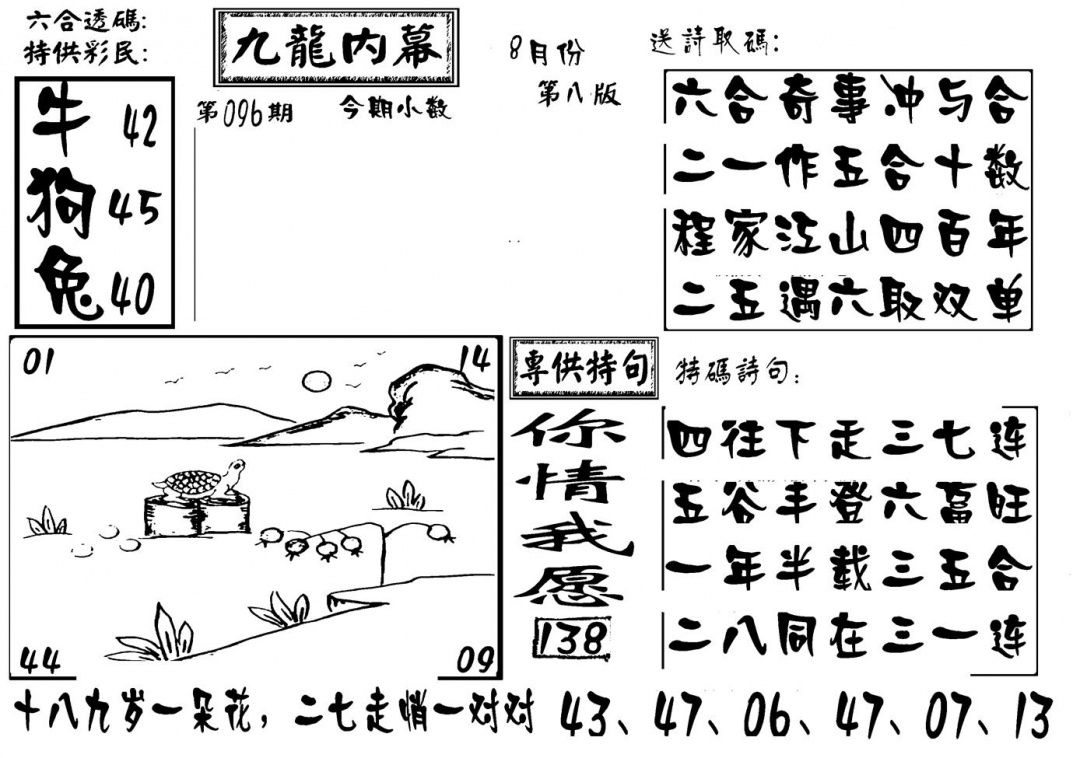 六合透碼:
特供彩民:
牛 42
狗 45
兔 40
九龍内幕
第096期 今期小数
8月份
第八版
送詩取碼:
六合奇事冲与合
二一作五合十数
程家江山四百年
二五遇六取双单
01 14
44 09
專供特句
你情我愿
138
特碼詩句:
四往下走三七连
五谷丰登六畜旺
一年半载三五合
二八同在三一连
十八九岁一朵花，二七走悄一对对 43、47、06、47、07、13